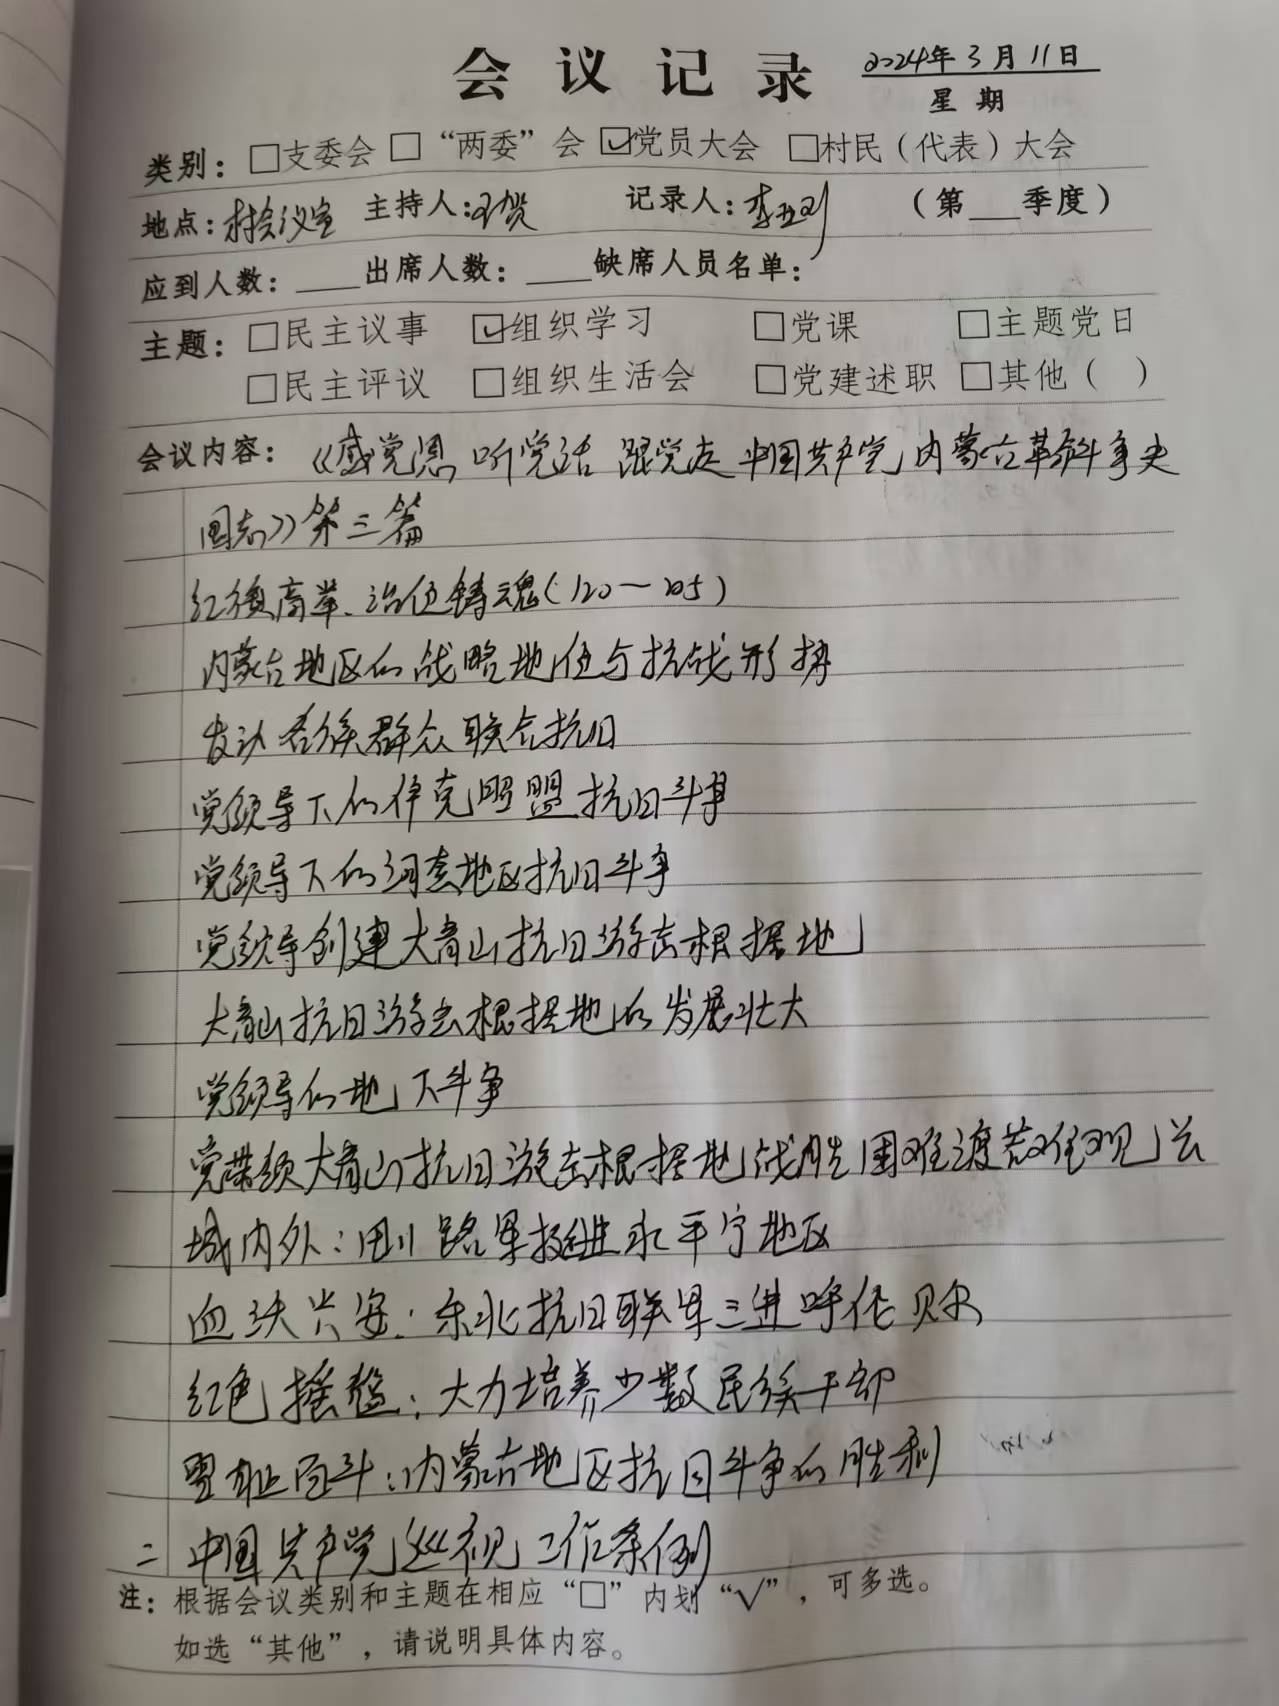 会议记录 2024年3月11日
星期
类别：□支委会 □“两委”会 ☑党员大会 □村民（代表）大会
地点：村会议室 主持人： 记录人：李 （第___季度）
应到人数：____出席人数：____缺席人员名单：
主题：□民主议事 ☑组织学习 □党课 □主题党日
□民主评议 □组织生活会 □党建述职 □其他（ ）
会议内容：《感党恩 听党话 跟党走 中国共产党内蒙古革命斗争史
图志》第三篇
红旗高举、治伍铸魂（120—205）
内蒙古地区的战略地位与抗战形势
发动各族群众联合抗日
党领导下的伊克昭盟抗日斗争
党领导下的河套地区抗日斗争
党领导创建大青山抗日游击根据地
大青山抗日游击根据地的发展壮大
党领导的地下斗争
党带领大青山抗日游击根据地战胜困难渡过难观
城内外：八路军挺进 平宁地区
血沃兴安：东北抗日联军三进呼伦贝尔
红色摇篮：大力培养少数民族干部
内蒙古地区抗日斗争的胜利
二 中国共产党巡视工作条例
注：根据会议类别和主题在相应“□”内划“√”，可多选。
如选“其他”，请说明具体内容。